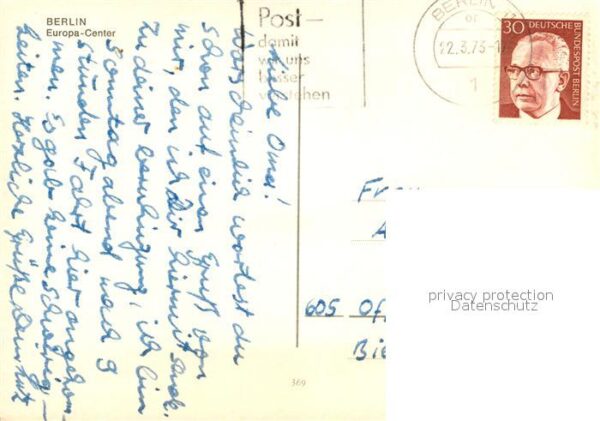 BERLIN
Europa-Center
Post –
damit
wir uns
besser
verstehen
BERLIN
12.3.73-1
1
30 DEUTSCHE BUNDESPOST BERLIN
Liebe Oma!
wartest du
schon auf einen Gruß von
mir, den ich Dir hiermit
zu deiner beruhigung, ich bin
Sonntag abend nach 9
stunden Fahrt hier angekom-
men. Es gab keine Schwierig-
keiten. Herzliche Grüße
Frau
A
605 Of
Bie
369
privacy protection
Datenschutz